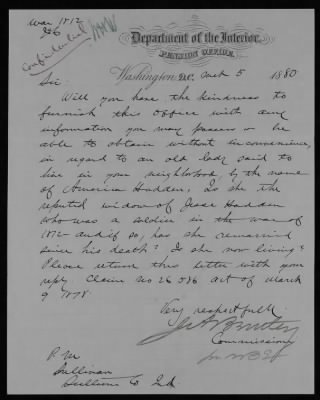 War 1812
Confidential
Department of the Interior,
PENSION OFFICE,
Washington, D.C. Oct 5 1880
Sir:
Will you have the kindness to
furnish this Office with any
information you may possess or be
able to obtain without inconvenience,
in regard to an old lady said to
live in your neighborhood by the name
of America Hadden, Is she the
reputed widow of Jesse Hadden
who was a soldier in the war of
1812 and if so, has she remarried
since his death? Is she now living?
Please return this letter with your
reply. Claim No 26586 Act of March
9 1878.
Very respectfully
Commissioner
P. M.
Sullivan
Sullivan Co Ind.